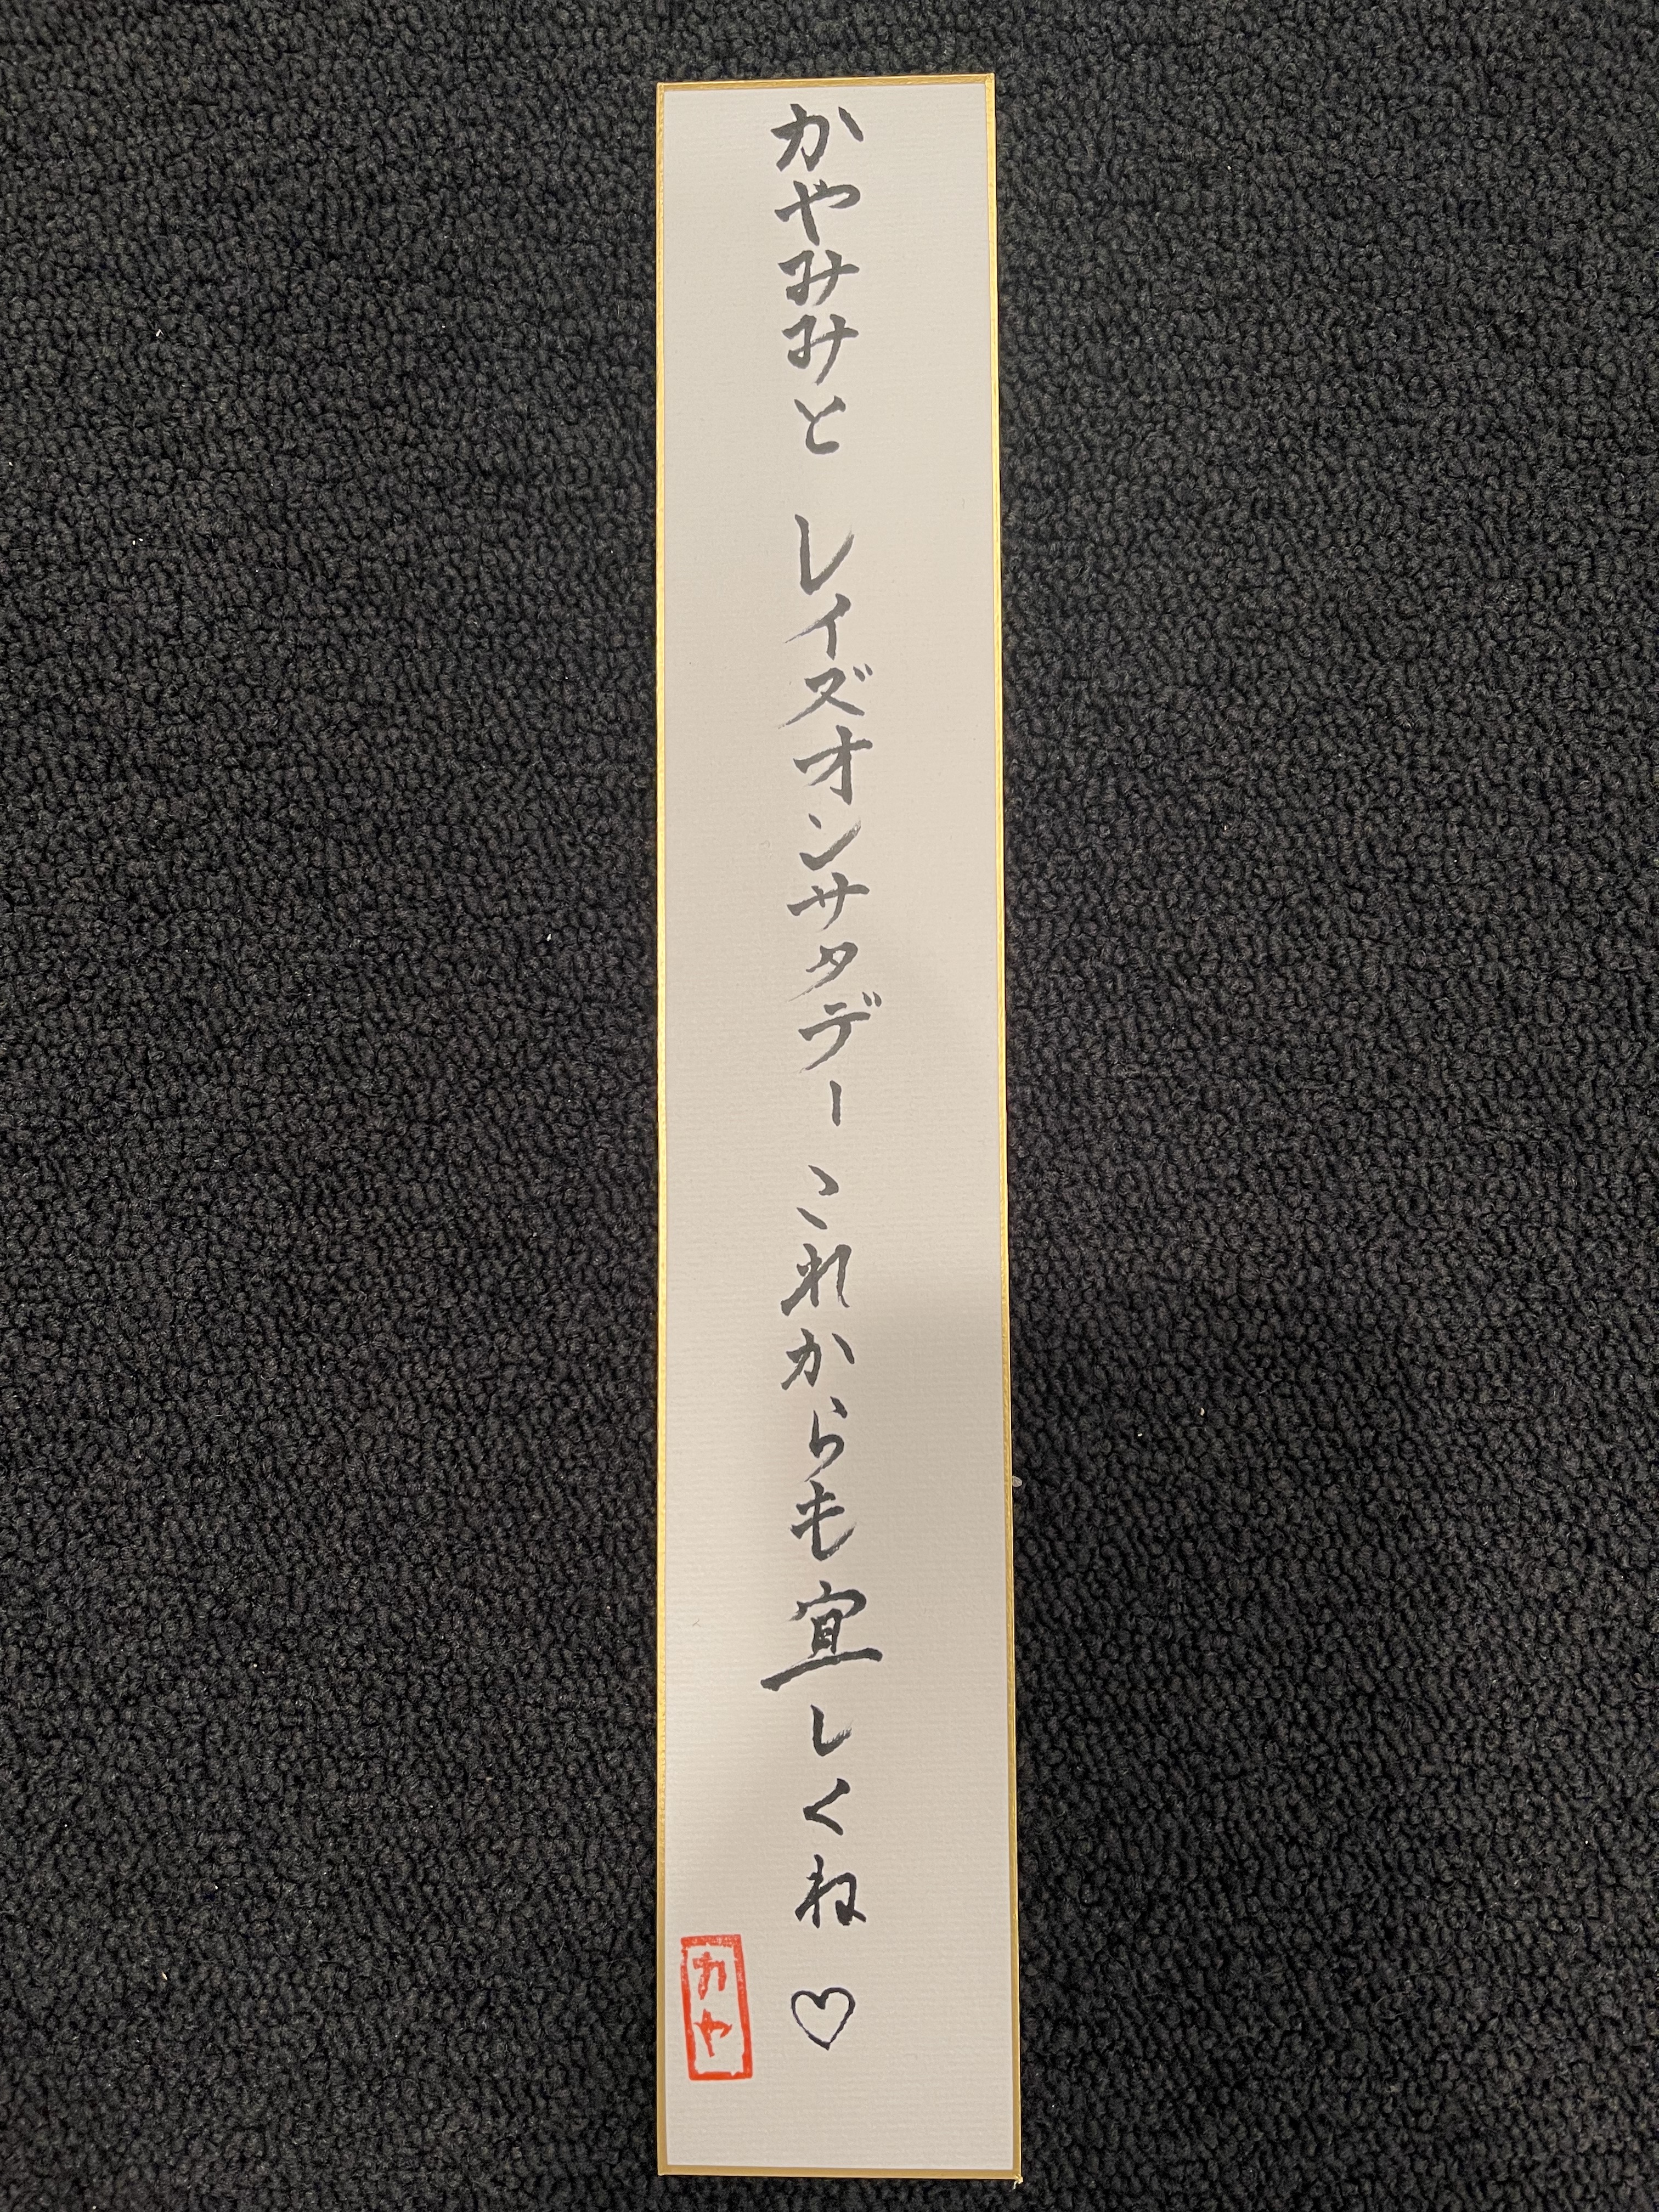 かやみみと レイズオンサタデー これからも宜しくね♡
カヤ